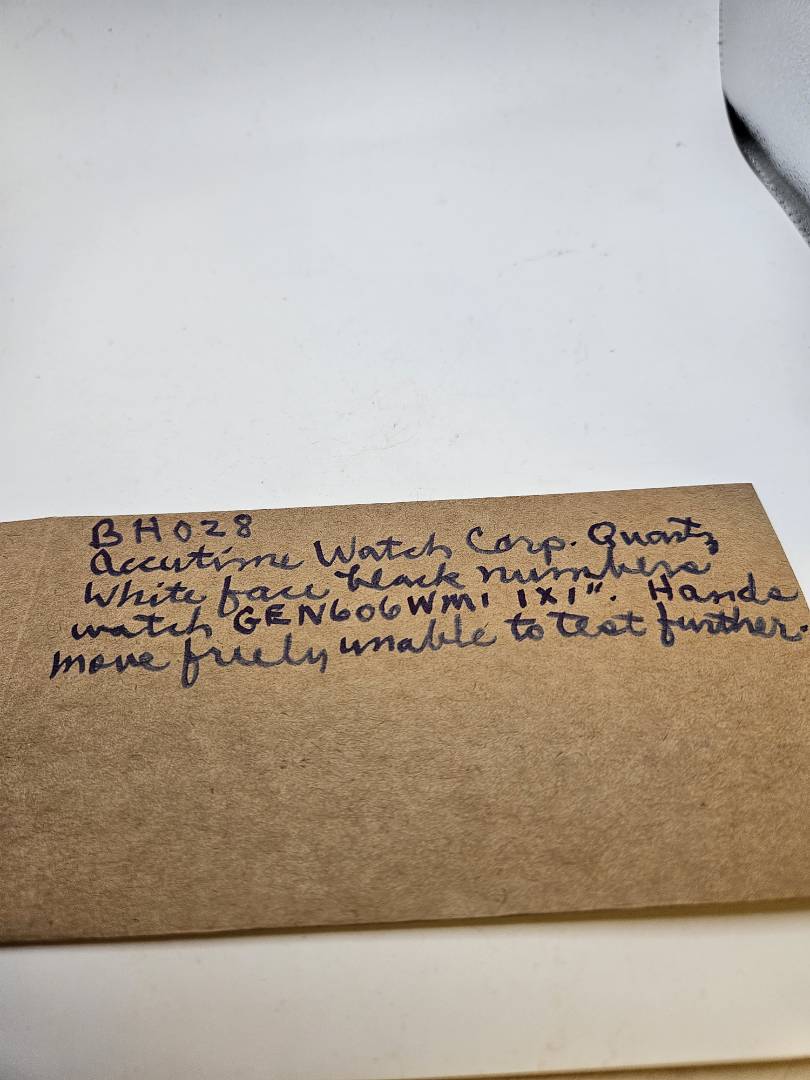 BH028
Accutime Watch Corp. Quartz
White face black numbers
watch GEN606WM1 1x1". Hands
move freely unable to test further.